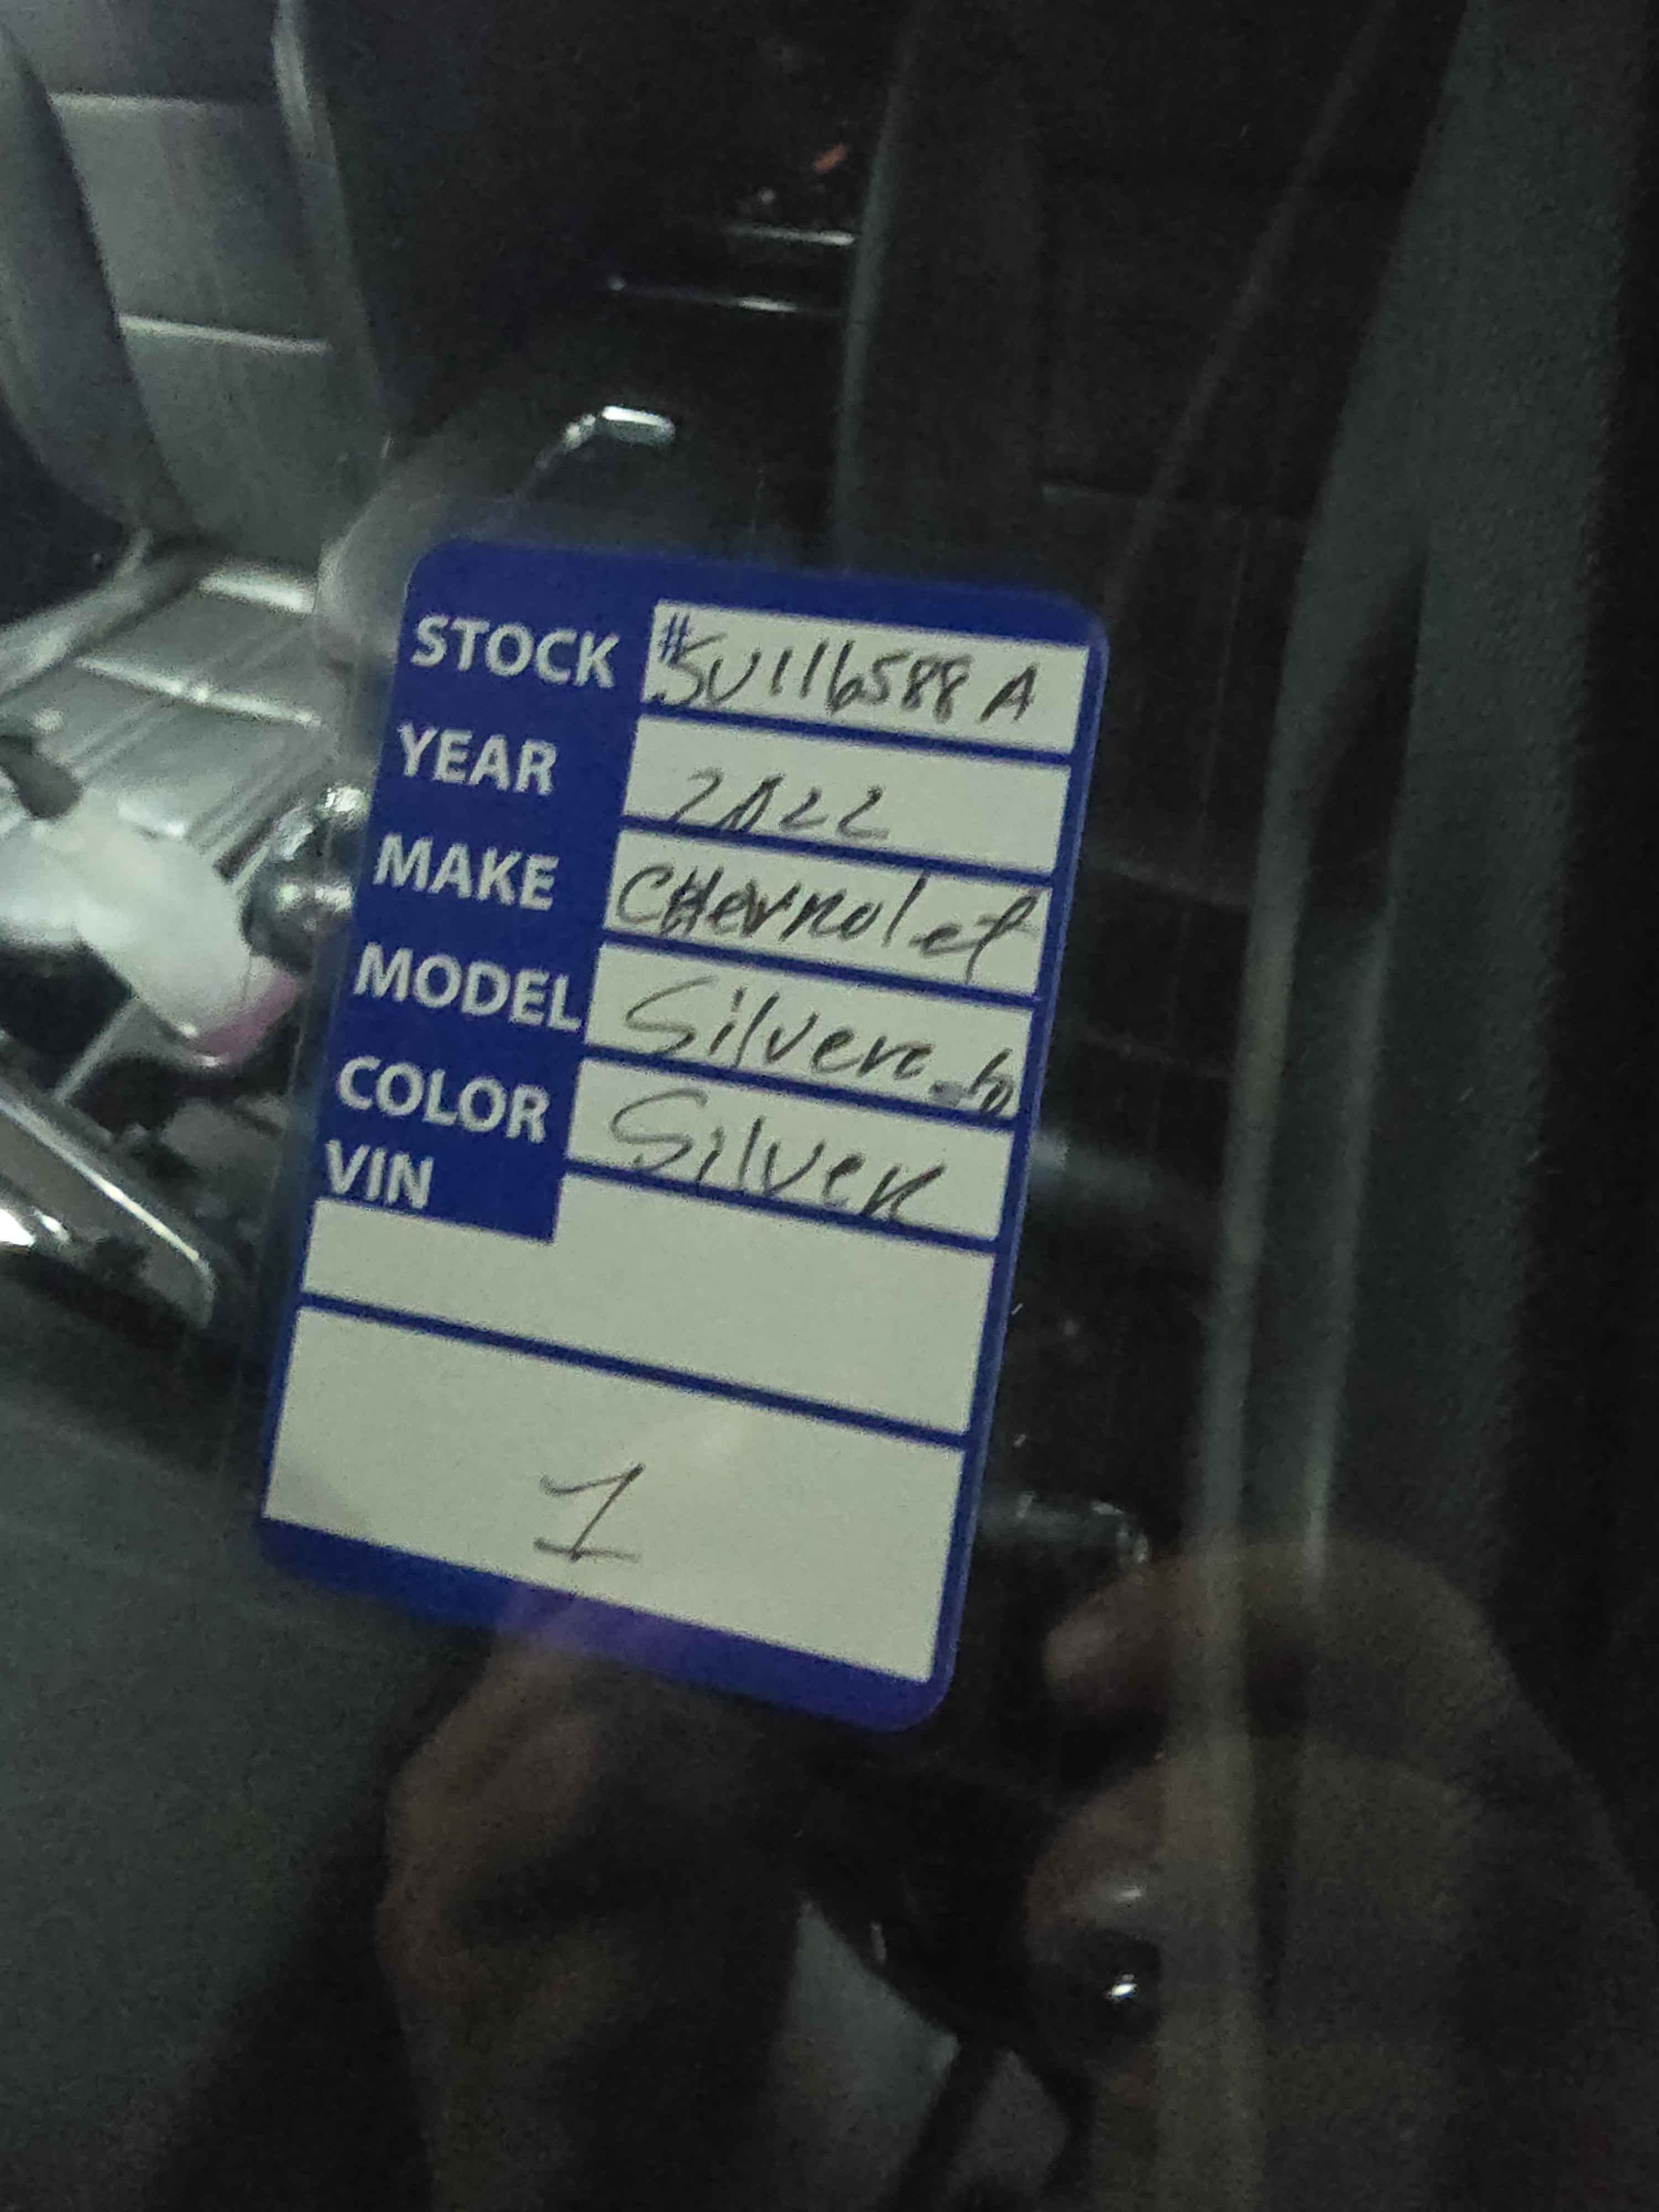 STOCK #5U116588A
YEAR 2022
MAKE CHevrolet
MODEL Silverado
COLOR Silver
VIN
1